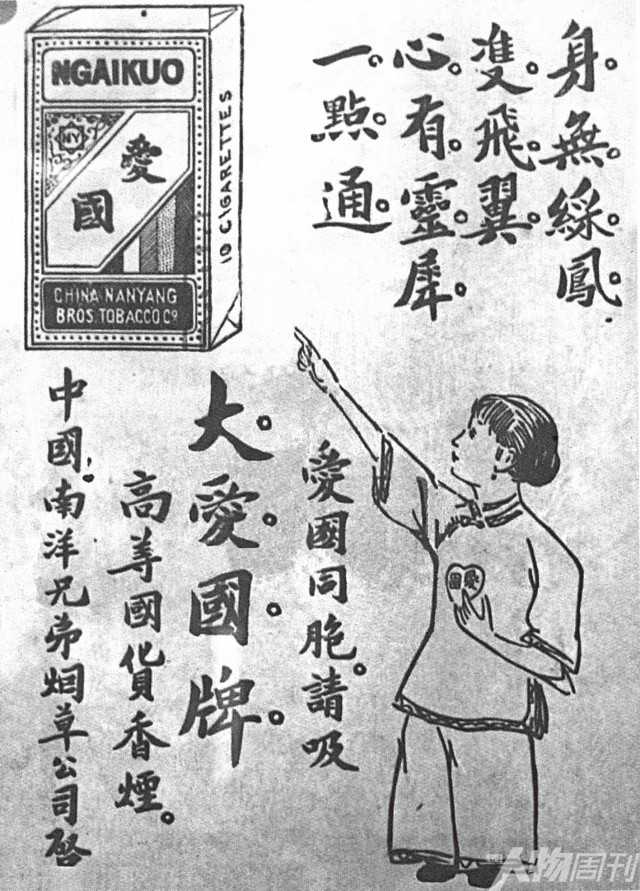 身無綵鳳
雙飛翼
心有靈犀
一點通
NGAIKUO
NY
愛國
10 CIGARETTES
CHINA NANYANG
BROS. TOBACCO Cº
愛國同胞。請吸
大愛國牌。
高等國貨香煙。
中國南洋兄弟烟草公司啓
愛國
人物周刊